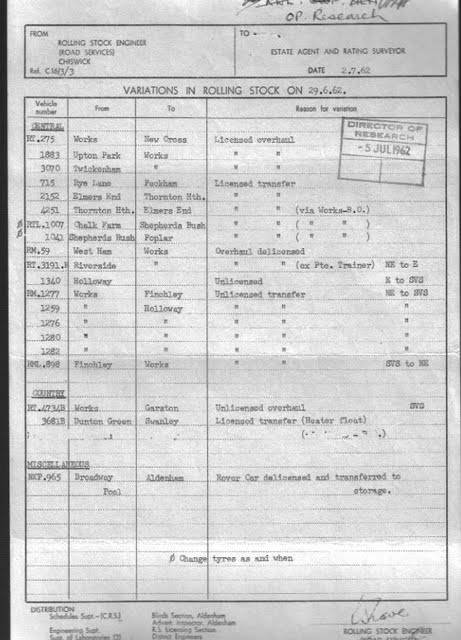 OP. Research
FROM
ROLLING STOCK ENGINEER
(ROAD SERVICES)
CHISWICK
Ref. C16/3/3
TO
ESTATE AGENT AND RATING SURVEYOR
DATE 2.7.62
VARIATIONS IN ROLLING STOCK ON 29.6.62.
Vehicle number From To Reason for variation
CENTRAL
RT.275 Works New Cross Licensed overhaul
1883 Upton Park Works " "
3070 Twickenham " " "
715 Rye Lane Peckham Licensed transfer
2152 Elmers End Thornton Hth. " "
4251 Thornton Hth. Elmers End " " (via Works-R.O.)
Ø RTL.1007 Chalk Farm Shepherds Bush " " ( " " )
Ø 1041 Shepherds Bush Poplar " " ( " " )
RM.59 West Ham Works Overhaul delicensed
RT.3191.B Riverside " " " (ex Pte. Trainer) NE to E
1340 Holloway Unlicensed E to SVS
RM.1277 Works Finchley Unlicensed transfer NE to SVS
1259 " Holloway " " "
1276 " " " " "
1280 " " " " "
1282 " " " " "
RML.898 Finchley Works " " SVS to NE
COUNTRY
RT.4734B Works Garston Unlicensed overhaul SVS
3681B Dunton Green Swanley Licensed transfer (Heater float)
MISCELLANEOUS
NXP.965 Broadway Aldenham Rover Car delicensed and transferred to
Pool storage.
Ø Change tyres as and when
DIRECTOR OF
RESEARCH
-5 JUL 1962
DISTRIBUTION
Schedules Supt.-(C.R.S.)
Engineering Supt.
Supt. of Laboratories (2)
Blinds Section, Aldenham
Advert. Inspector, Aldenham
R.S. Licensing Section
District Engineers
ROLLING STOCK ENGINEER